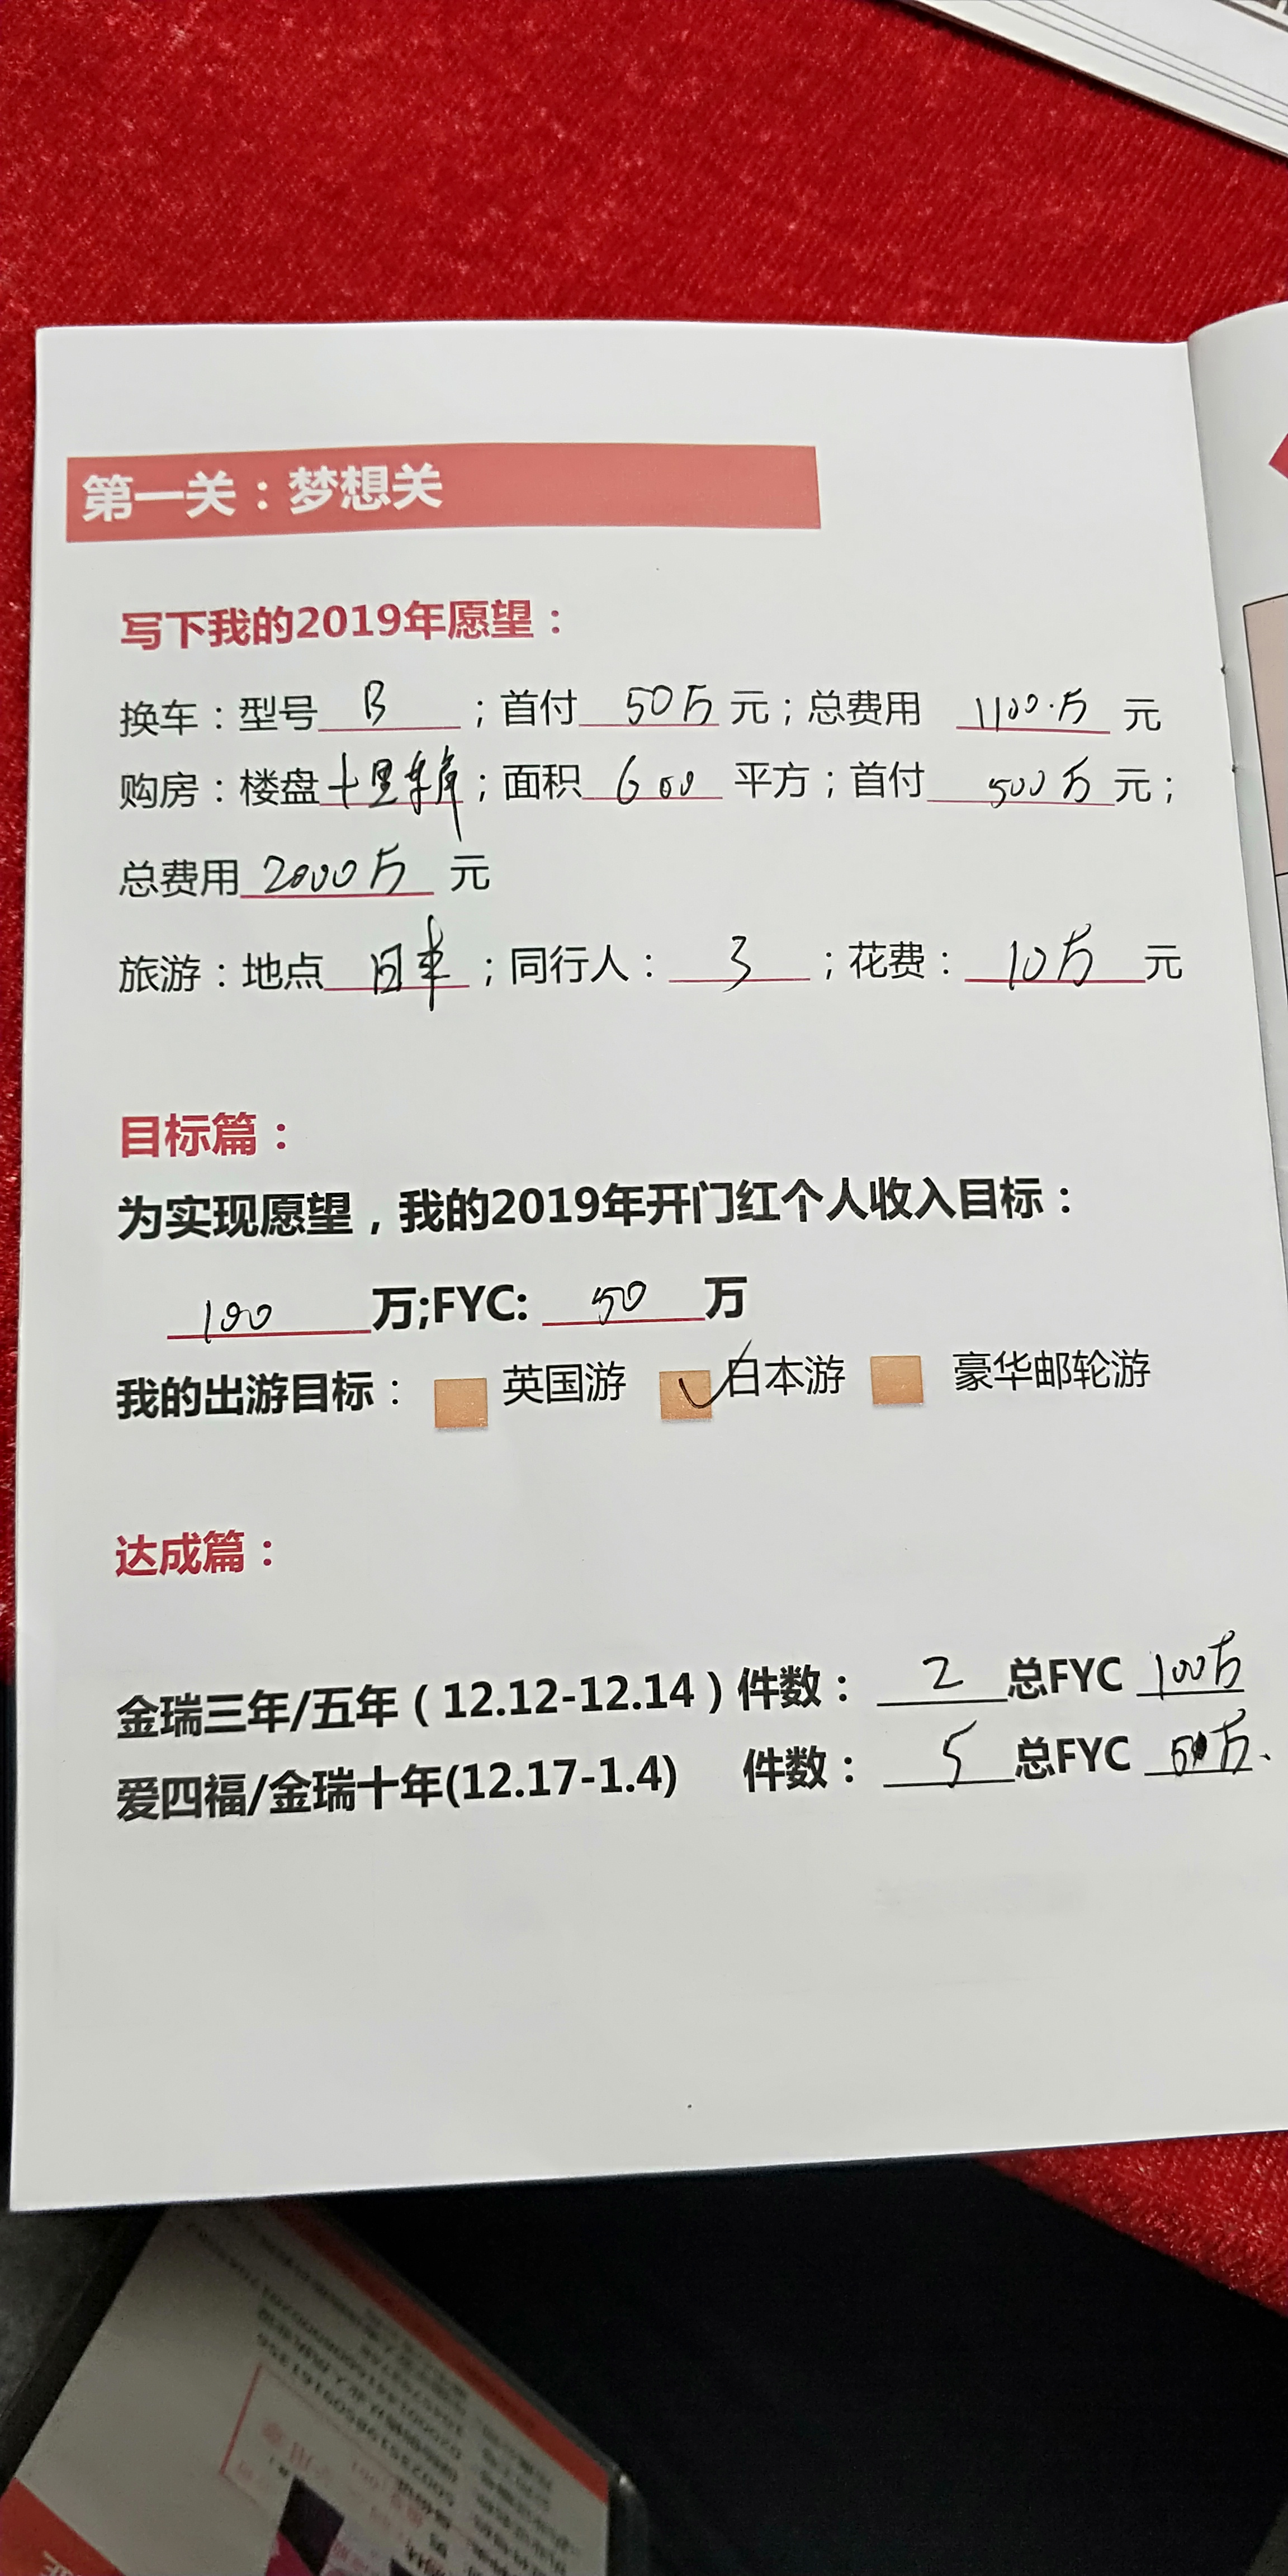 第一关：梦想关
写下我的2019年愿望：
换车：型号 B ；首付 50万 元；总费用 1100万 元
购房：楼盘 十里 ；面积 600 平方；首付 500万 元；
总费用 2000万 元
旅游：地点 日本 ；同行人： 3 ；花费： 10万 元
目标篇：
为实现愿望，我的2019年开门红个人收入目标：
100 万;FYC: 50 万
我的出游目标： 英国游 ✓日本游 豪华邮轮游
达成篇：
金瑞三年/五年（12.12-12.14）件数： 2 总FYC 100万
爱四福/金瑞十年(12.17-1.4) 件数： 5 总FYC 万